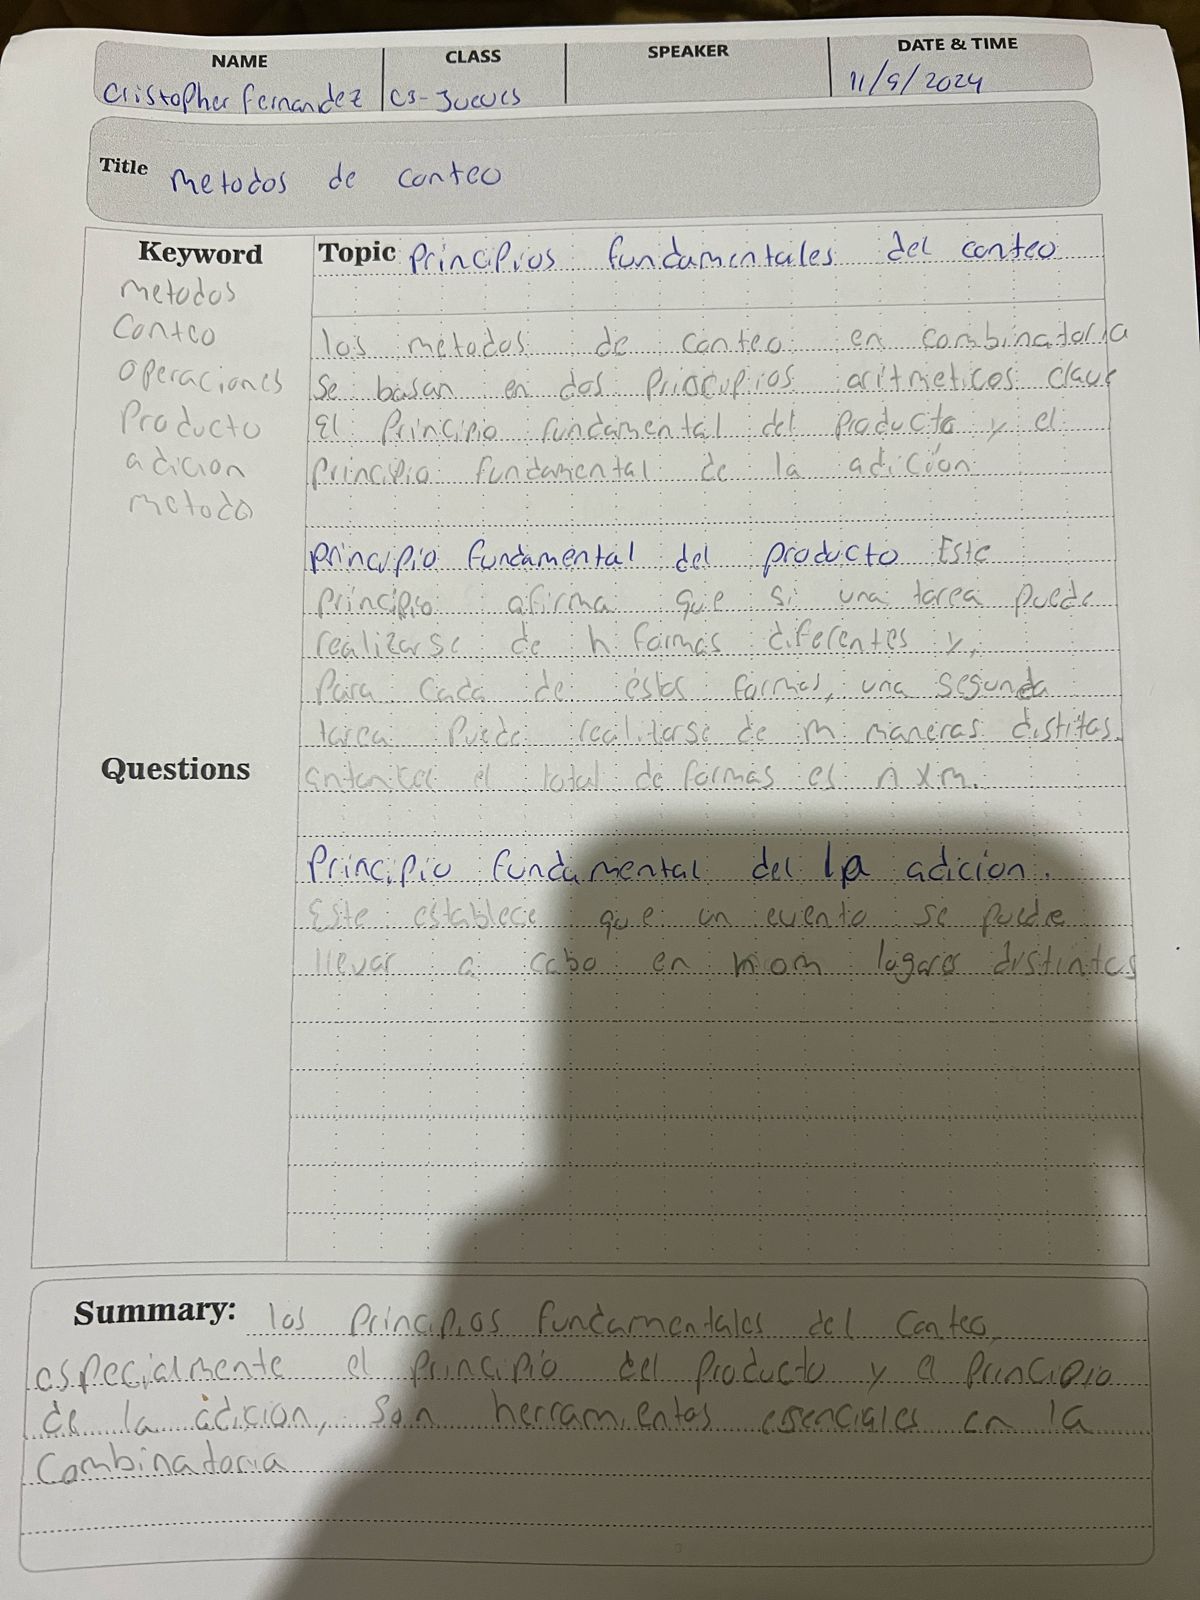 NAME CLASS SPEAKER DATE & TIME
Cristopher Fernandez C3-Jueves 11/9/2024
Title Metodos de conteo
Keyword
metodos
Conteo
operaciones
Producto
adicion
metodo
Questions
Topic Principios fundamentales del conteo
los metodos de conteo en combinatoria
se basan en dos principios aritmeticos clave
El Principio fundamental del producto y el
principio fundamental de la adicion
principio fundamental del producto Este
principio afirma que si una tarea puede
realizarse de n formas diferentes y,
Para cada de estas formas, una segunda
tarea puede realizarse de m maneras distitas.
el total de formas es n x m.
Principio fundamental del la adicion.
Este establece que un evento se puede
llevar a cabo en n o m lugares distintos
Summary: los Principios fundamentales del conteo,
especialmente el principio del producto y el principio
de la adicion, son herramientas esenciales en la
Combinatoria